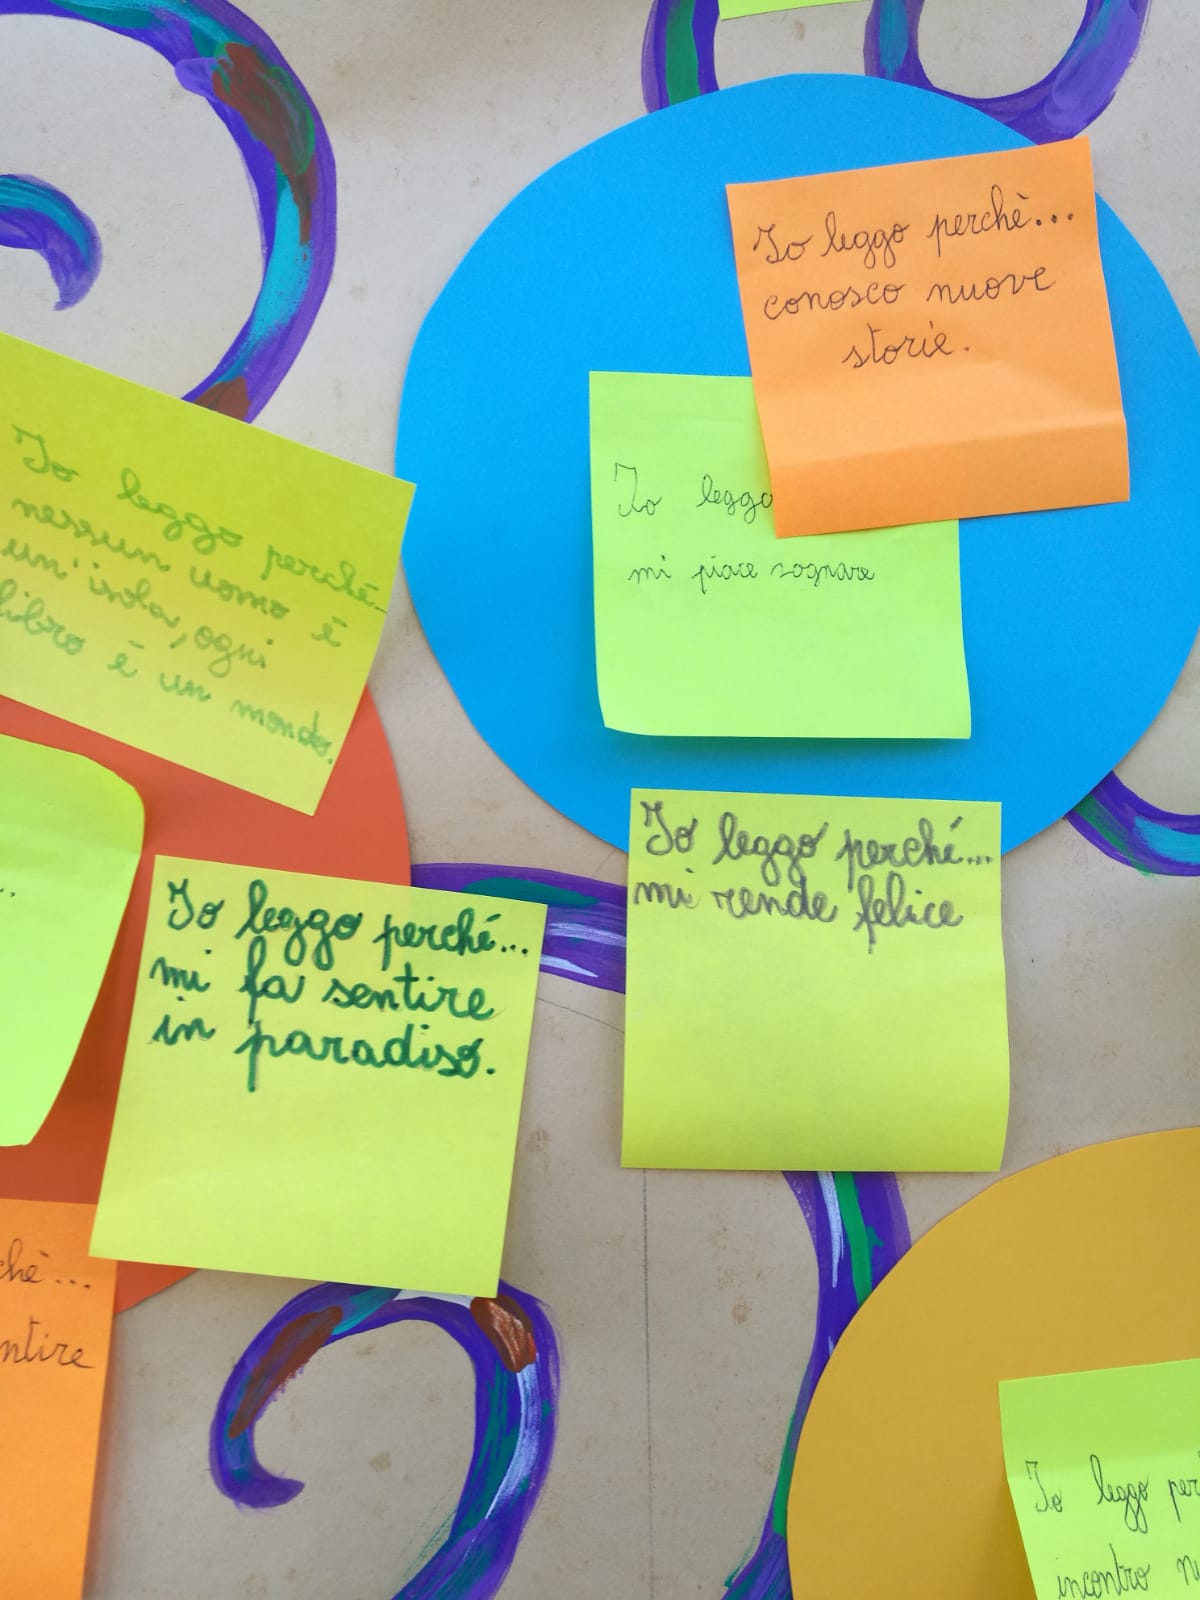 Io leggo perchè...
conosco nuove
storie.
Io leggo
mi piace sognare
Io leggo perché...
nessun uomo è
un'isola, ogni
libro è un mondo.
Io leggo perché...
mi rende felice
Io leggo perché...
mi fa sentire
in paradiso.
Io leggo
incontro